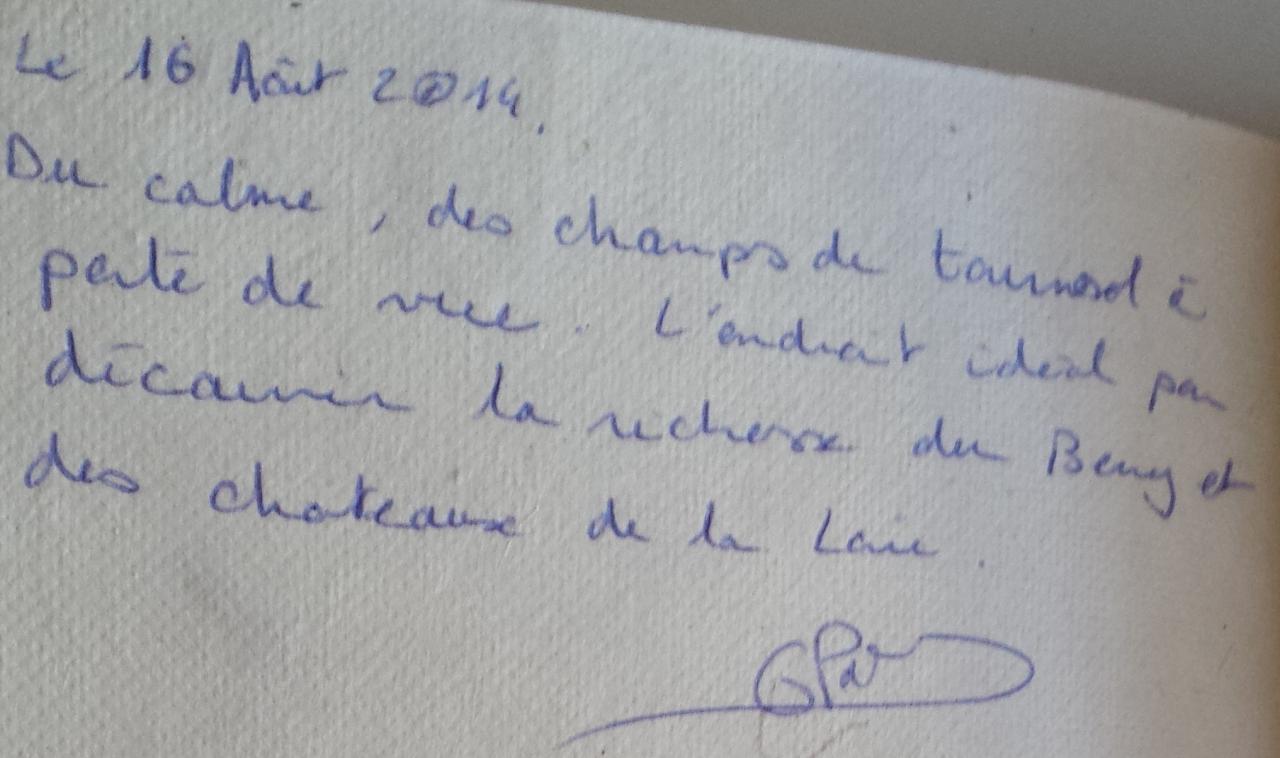 Le 16 Août 2014.
Du calme, des champs de tournesol à
perte de vue. L'endroit idéal pour
découvrir la richesse du Berry et
des chateaux de la Loire.